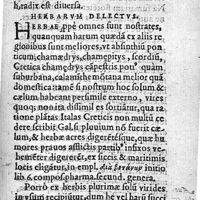 h, radix est diuersa.
HERBARVM DELECTVS.
HERBAE ꝓpe omnes sunt nostrates,
quanquam harum quædã ex aliis re
gionibus sunt meliores, vt absinthiũ pon
ticum, chamædrys, chamepitys, scordiũ,
Cretica chamędrys cãpestris potẽ quàm
suburbana, calaminthe mõtana melior quã
domestica: tamē si nostrum hoc solum &
cælum habeant persimile externo, vires
quoq; nonnũ dissimili ex sortiũtur, qua ra
tione plātas Italas Creticis non multũ ce
dere scribit Gal. si pluuium nō fuerit cæ=
lum, & herbæ acres digerētesque, quæ hu
mores prauos afflictis partib9 infixos ve=
hemēter digerũt, ex siccis & maritimis
locis eligātur, in empl. ac
libi9 & composĩ pharma. secund. genera.
Porrò ex herbis plurimæ solũ virides
in vsum recipiuntur, dum he vel harũ succi